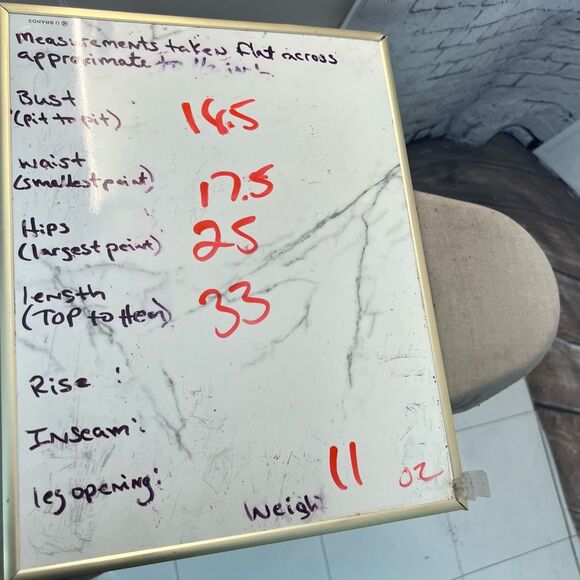 U BRANDS
Measurements taken flat across
approximate
Bust
(pit to pit) 18.5
Waist
(smallest point) 17.5
Hips
(largest point) 25
Length
(TOP to Hem) 33
Rise :
Inseam:
leg opening:
Weight 11 oz